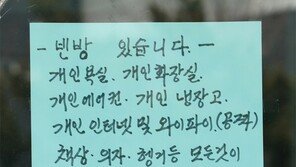 - 빈방 있습니다. -
개인욕실. 개인화장실.
개인에어컨. 개인 냉장고.
개인 인터넷 및 와이파이.(공짜)
책상·의자·행거등 모든것이